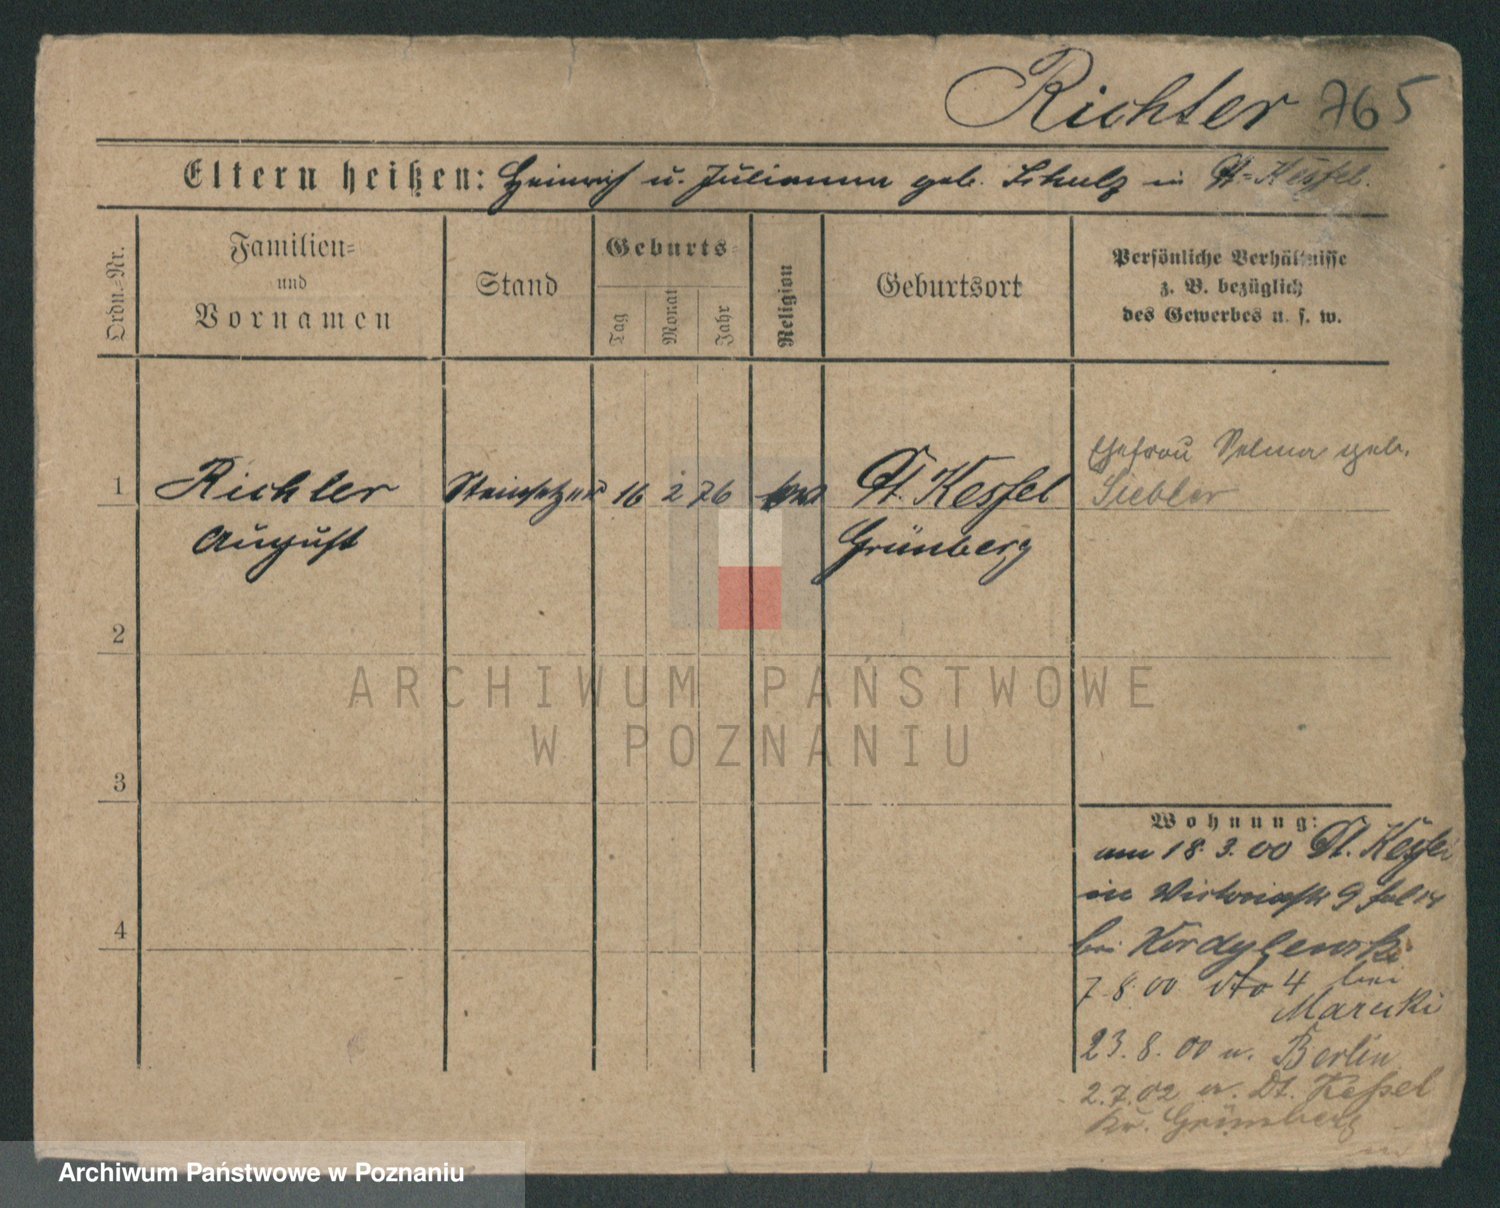 Richter 765
Eltern heißen: Heinrich u. Julianna geb. Schulz in Dt. Kessel.
Ordn.-Nr.
Familien-
und
Vornamen
Stand
Geburts-
Tag
Monat
Jahr
Religion
Geburtsort
Persönliche Verhältnisse
z. B. bezüglich
des Gewerbes u. s. w.
Ehefrau Selma geb.
1 Richter Steinsetzer 16 2 76 Dt. Kessel Siebler
August Grünberg
2
ARCHIWUM PAŃSTWOWE
W POZNANIU
3
Wohnung:
am 18.3.00 Dt. Kessel
in Victoriastr 9
4
bei Kordylewski
7.8.00 dto 4 bei
Marcki
23.8.00 n. Berlin
2.7.02 Dt. Kessel
Kr. Grünberg
Archiwum Państwowe w Poznaniu